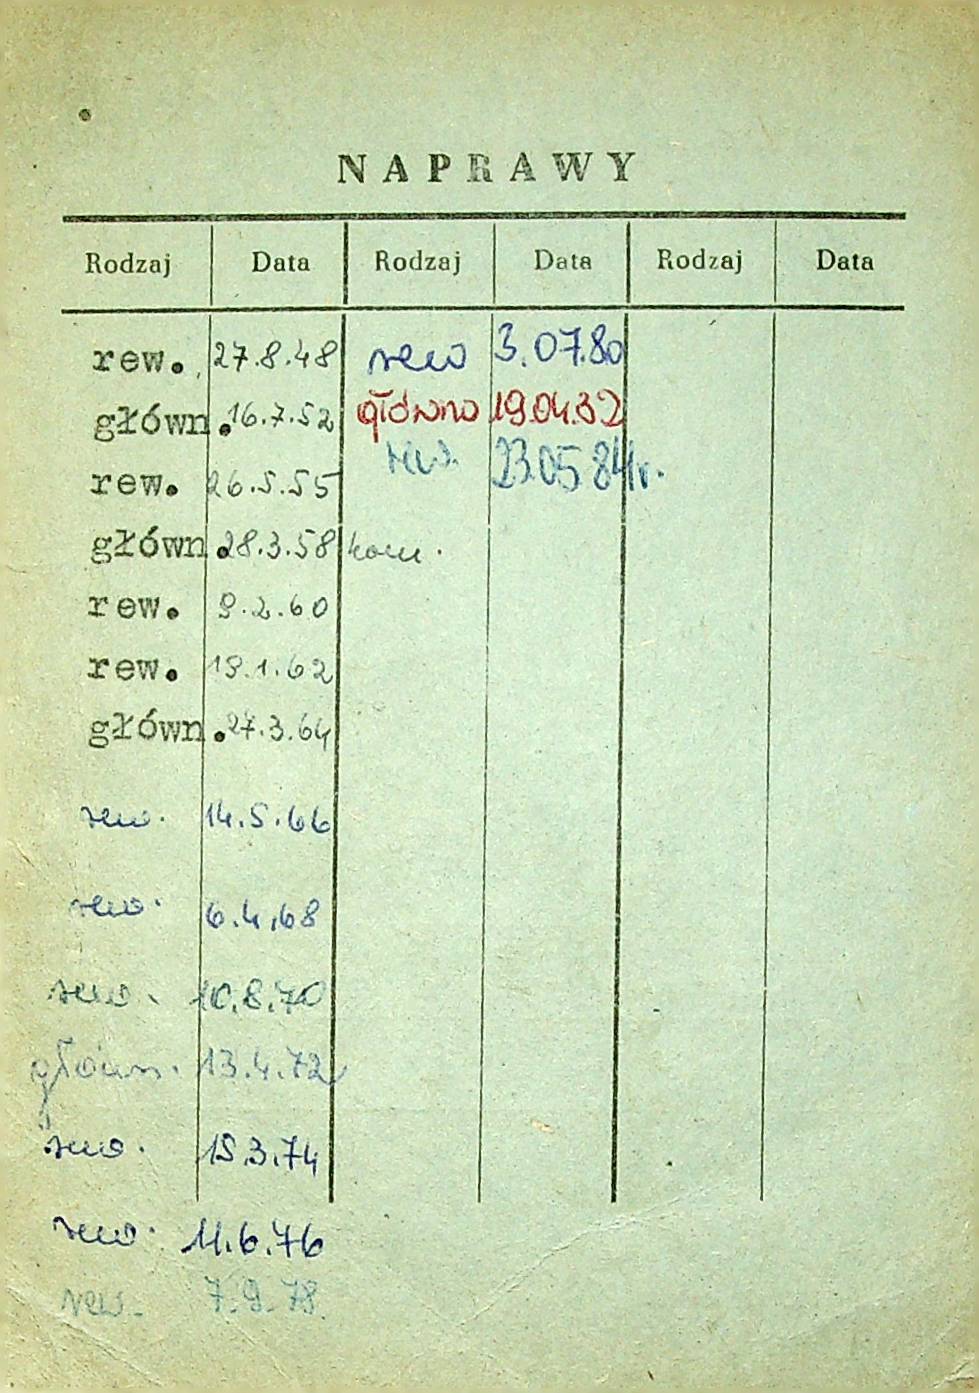 NAPRAWY
Rodzaj Data Rodzaj Data Rodzaj Data
rew. 27.8.48 rew 3.07.80
główn. 16.7.52 główna 19.04.82
rew. 26.5.55 rew. 23.05.84r.
główn. 28.3.58 kom.
rew. 9.2.60
rew. 19.1.62
główn. 27.3.64
rew. 14.5.66
rew. 6.4.68
rew. 10.8.70
główn. 13.4.72
rew. 15.3.74
rew. 11.6.76
rew. 7.9.78